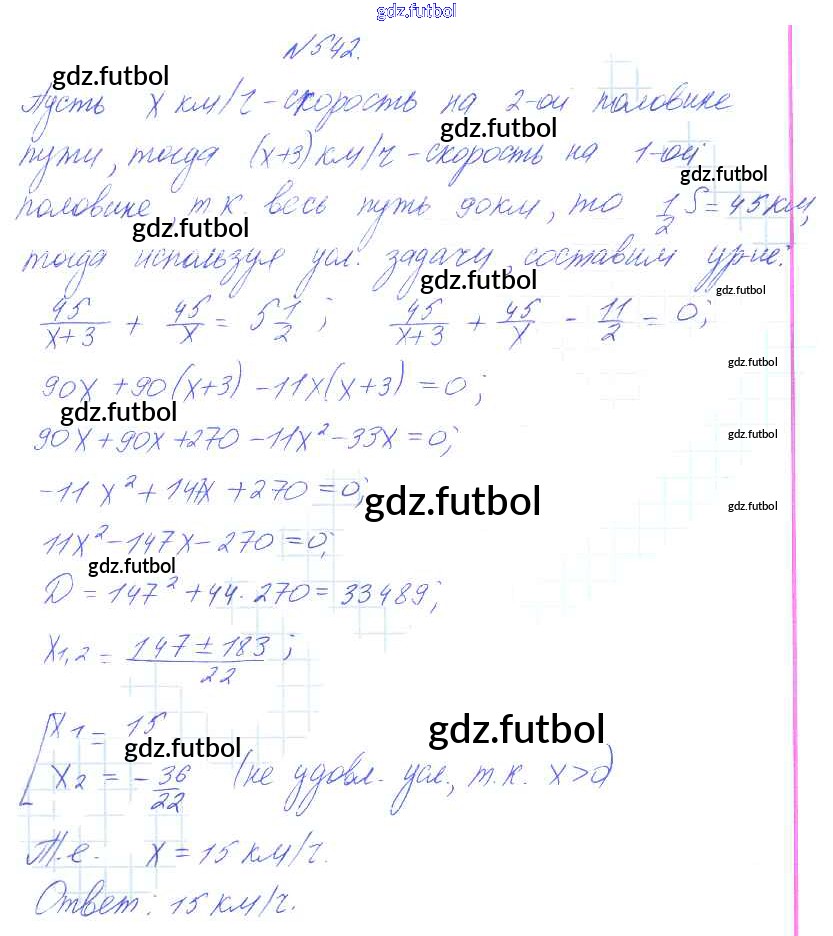 gdz.futbol
№542.
gdz.futbol
Пусть x км/ч - скорость на 2-ой половине
gdz.futbol
пути, тогда (x+3) км/ч - скорость на 1-ой
gdz.futbol
половине, т к весь путь 90км, то 1/2 S = 45 км,
gdz.futbol
тогда используя усл. задачи, составим ур-ие:
gdz.futbol
gdz.futbol
45/(x+3) + 45/x = 5 1/2 ; 45/(x+3) + 45/x - 11/2 = 0;
gdz.futbol
90x + 90(x+3) - 11x(x+3) = 0;
gdz.futbol
gdz.futbol
90x + 90x + 270 - 11x² - 33x = 0;
-11x² + 147x + 270 = 0;
gdz.futbol
gdz.futbol
11x² - 147x - 270 = 0;
gdz.futbol
D = 147² + 44 · 270 = 33489;
x1,2 = (147 ± 183)/22 ;
[ x1 = 15
gdz.futbol
gdz.futbol
x2 = - 36/22 (не удовл. усл., т.к. x>0)
Т.е. x = 15 км/ч.
Ответ: 15 км/ч.